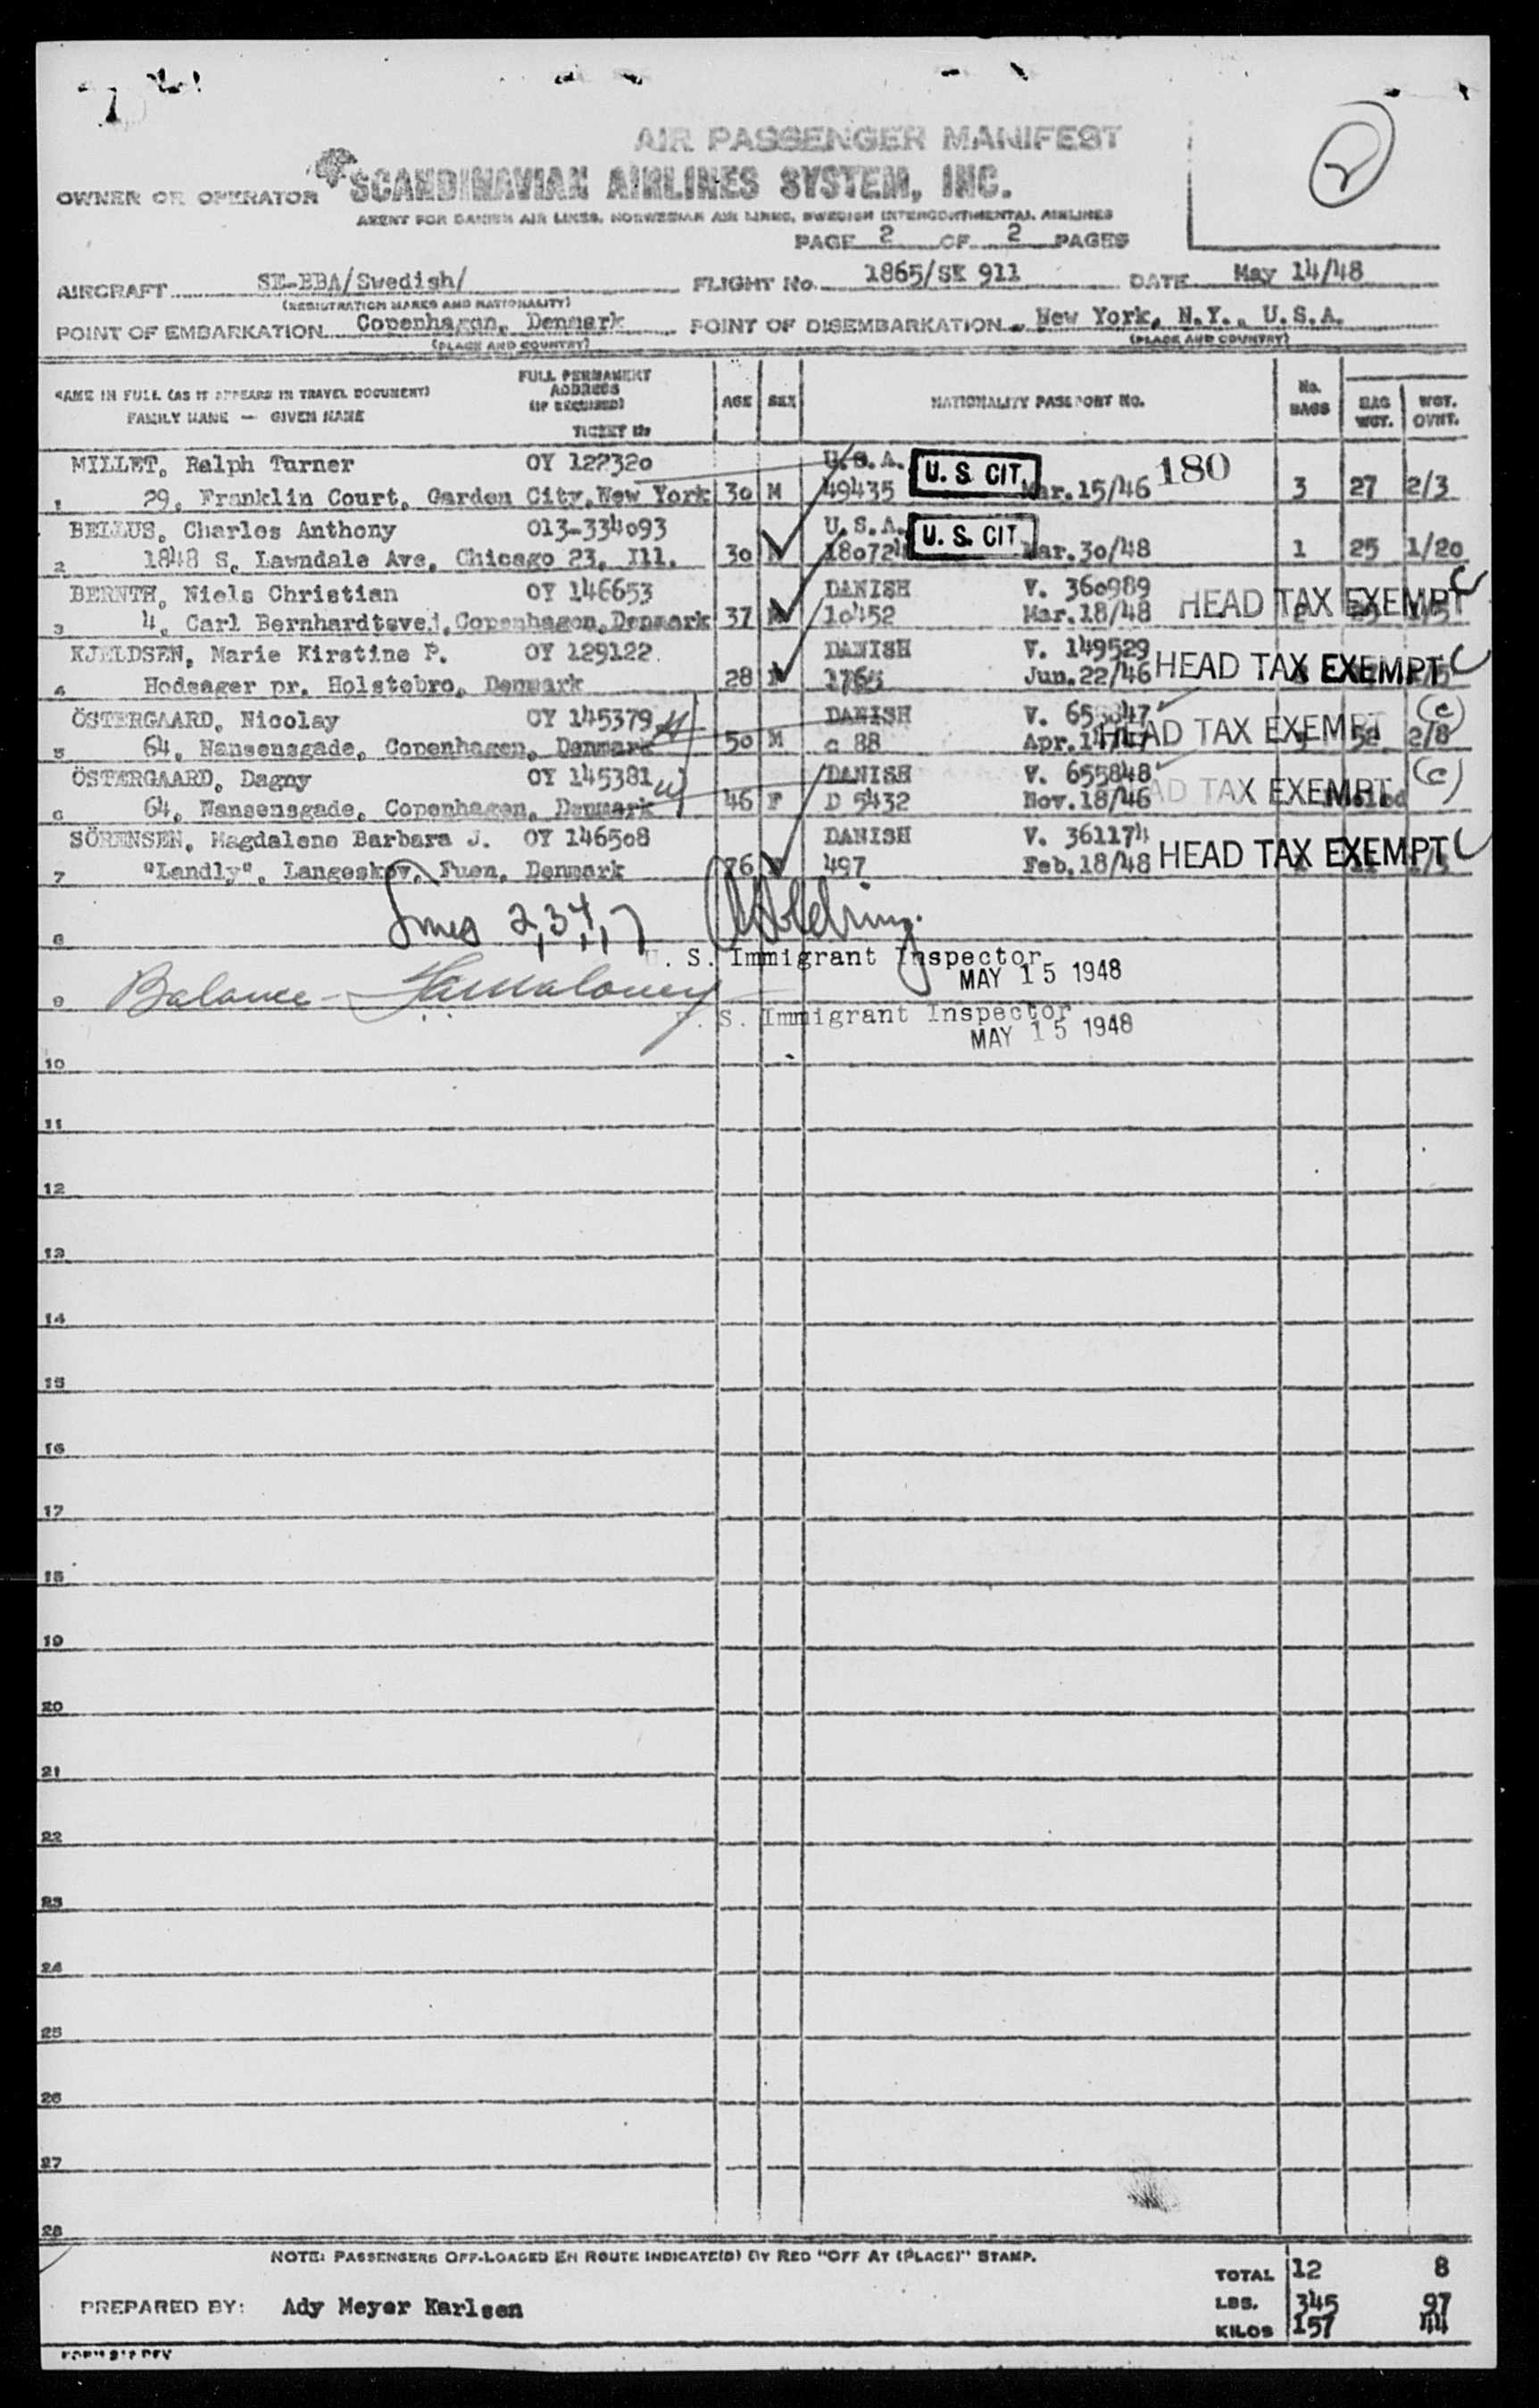 AIR PASSENGER MANIFEST
2
OWNER OR OPERATOR SCANDINAVIAN AIRLINES SYSTEM, INC.
AGENT FOR DANISH AIR LINES, NORWEGIAN AIR LINES, SWEDISH INTERCONTINENTAL AIRLINES
PAGE 2 OF 2 PAGES
AIRCRAFT SE-BBA/Swedish/ FLIGHT No. 1865/SK 911 DATE May 14/48
(REGISTRATION MARKS AND NATIONALITY)
POINT OF EMBARKATION Copenhagen, Denmark POINT OF DISEMBARKATION New York, N.Y., U.S.A.
(PLACE AND COUNTRY) (PLACE AND COUNTRY)
NAME IN FULL (AS IT APPEARS IN TRAVEL DOCUMENT)
FAMILY NAME — GIVEN NAME
FULL PERMANENT
ADDRESS
(IF REQUIRED)
TICKET No
AGE SEX NATIONALITY PASSPORT NO. No. BAGS BAG WGT. WGT. OVHT.
MILLET, Ralph Turner OY 122320 U.S.A. U. S. CIT. 180
1 29, Franklin Court, Garden City, New York 30 M 49435 Mar.15/46 3 27 2/3
BELLUS, Charles Anthony 013-334093 U.S.A. U. S. CIT.
2 1848 S. Lawndale Ave, Chicago 23, Ill. 30 M 180724 Mar.30/48 1 25 1/20
BERNTH, Niels Christian OY 146653 DANISH V. 360989 HEAD TAX EXEMPT C
3 4, Carl Bernhardtsvej, Copenhagen, Denmark 37 M 10452 Mar.18/48
KJELDSEN, Marie Kirstine P. OY 129122. DANISH V. 149529 HEAD TAX EXEMPT C
4 Hodsager pr. Holstebro, Denmark 28 F 1765 Jun.22/46
ÖSTERGAARD, Nicolay OY 145379 DANISH V. 655847 HEAD TAX EXEMPT (c)
5 64, Nansensgade, Copenhagen, Denmark 50 M c 88 2/8
ÖSTERGAARD, Dagny OY 145381 DANISH V. 655848 HEAD TAX EXEMPT (c)
6 64, Nansensgade, Copenhagen, Denmark 46 F D 5432 Nov.18/46
SÖRENSEN, Magdalene Barbara J. OY 146508 DANISH V. 361174 HEAD TAX EXEMPT C
7 "Landly", Langeskov, Fuen, Denmark 76 F 497 Feb.18/48
Lines 2,3,4,7
8 U. S. Immigrant Inspector
MAY 15 1948
9 Balance
U. S. Immigrant Inspector
MAY 15 1948
10
11
12
13
14
15
16
17
18
19
20
21
22
23
24
25
26
27
28
NOTE: PASSENGERS OFF-LOADED EN ROUTE INDICATE(D) BY RED "OFF AT (PLACE)" STAMP.
TOTAL 12 8
PREPARED BY: Ady Meyer Karlsen
LBS. 345 97
KILOS 157 44